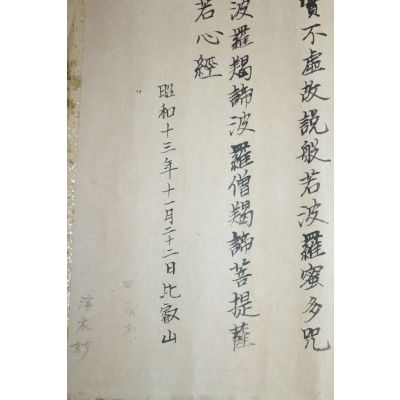 實不虛故説般若波羅蜜多咒
波羅羯諦波羅僧羯諦菩提薩
若心經
昭和十三年十一月二十二日比叡山